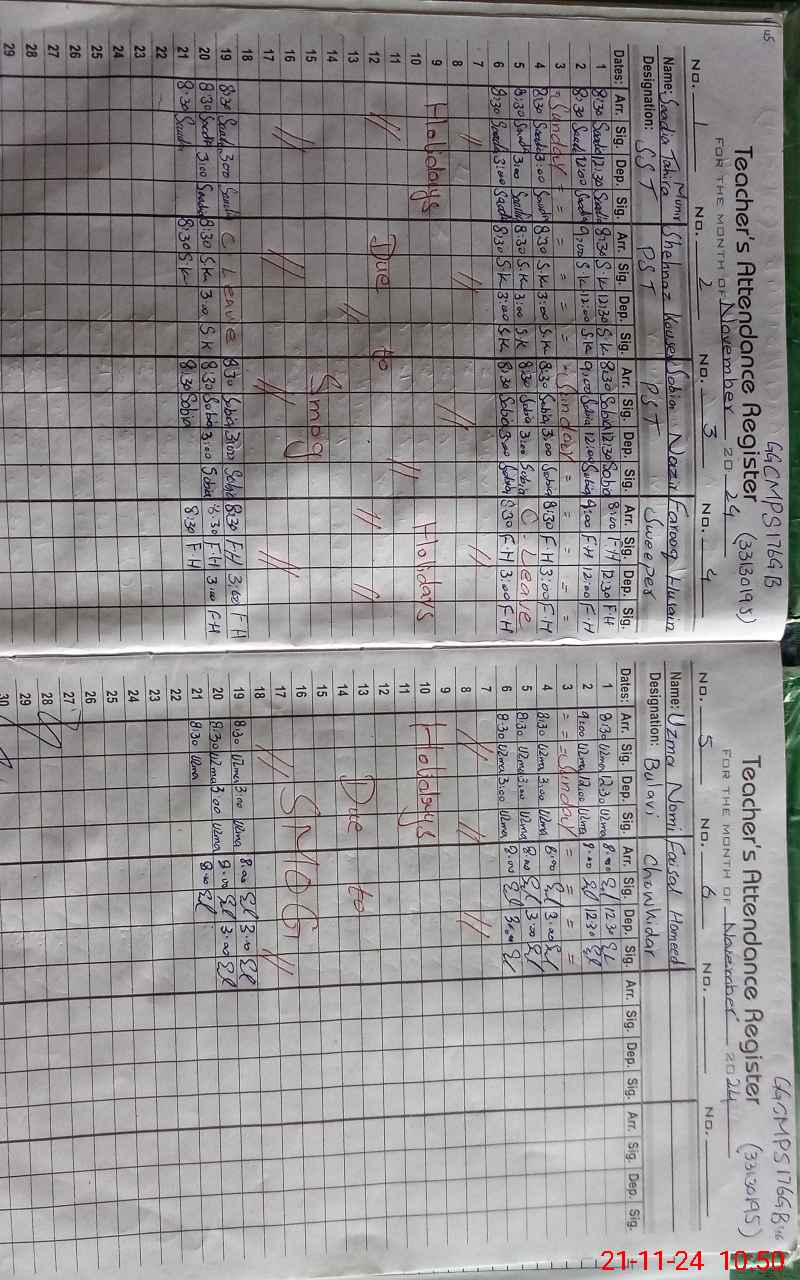 GGCMPS176GB
Teacher's Attendance Register (33130195)
FOR THE MONTH OF November 2024
No. 1 No. 2 No. 3 No. 4
Name: Saadia Tahira Munir Shehnaz Kouser Sobia Nazir Farooq Husain
Designation: SST PST PST Sweeper
Dates: Arr. Sig. Dep. Sig. Arr. Sig. Dep. Sig. Arr. Sig. Dep. Sig. Arr. Sig. Dep. Sig.
1 8:30 Saadi 12:30 Saadi 8:30 S.K 12:30 S.K 8:30 Sobia 12:30 Sobia 8:00 F.H 12:30 F.H
2 8:30 Saadi 12:00 Saadi 9:00 S.K 12:00 S.K 9:00 Sobia 12:00 Sobia 9:00 F.H 12:00 F.H
3 = Sunday = = = = = = = Sunday = = = = =
4 8:30 Saadi 3:00 Saadi 8:30 S.K 3:00 S.K 8:30 Sobia 3:00 Sobia 8:30 F.H 3:00 F.H
5 8:30 Saadi 3:00 Saadi 8:30 S.K 3:00 S.K 8:30 Sobia 3:00 Sobia C. Leave
6 8:30 Saadi 3:00 Saadi 8:30 S.K 3:00 S.K 8:30 Sobia 3:00 Sobia 8:30 F.H 3:00 F.H
7 // //
8 // // //
9 Holidays Holidays
10
11 //
12 // Due to //
13 // //
14
15 Smog
16 //
17 // // //
18
19 8:30 Saadi 3:00 Saadi C Leave 8:30 Sobia 3:00 Sobia 8:30 F.H 3:00 F.H
20 8:30 Saadi 3:00 Saadi 8:30 S.K 3:00 S.K 8:30 Sobia 3:00 Sobia 8:30 F.H 3:00 F.H
21 8:30 Saadi 8:30 S.K 8:30 Sobia 8:30 F.H
22
23
24
25
26
27
28
29
GGCMPS176GB
Teacher's Attendance Register (33130195)
FOR THE MONTH OF November 2024
No. 5 No. 6 No. No.
Name: Uzma Nomi Faisal Hameed
Designation: Bulavi Chowkidar
Dates: Arr. Sig. Dep. Sig. Arr. Sig. Dep. Sig. Arr. Sig. Dep. Sig. Arr. Sig. Dep. Sig.
1 8:30 Uzma 12:30 Uzma 8:00 12:30
2 9:00 Uzma 12:00 Uzma 8:00 12:30
3 = = = Sunday = = = =
4 8:30 Uzma 3:00 Uzma 8:00 3:00
5 8:30 Uzma 3:00 Uzma 8:00 3:00
6 8:30 Uzma 3:00 Uzma 8:00 3:00
7
8 // // //
9
10 Holidays
11
12
13 Due to
14
15
16 SMOG
17 // //
18
19 8:30 Uzma 3:00 Uzma 8:00 3:00
20 8:30 Uzma 3:00 Uzma 8:00 3:00
21 8:30 Uzma 8:00
22
23
24
25
26
27
28
29
30
21-11-24 10:50